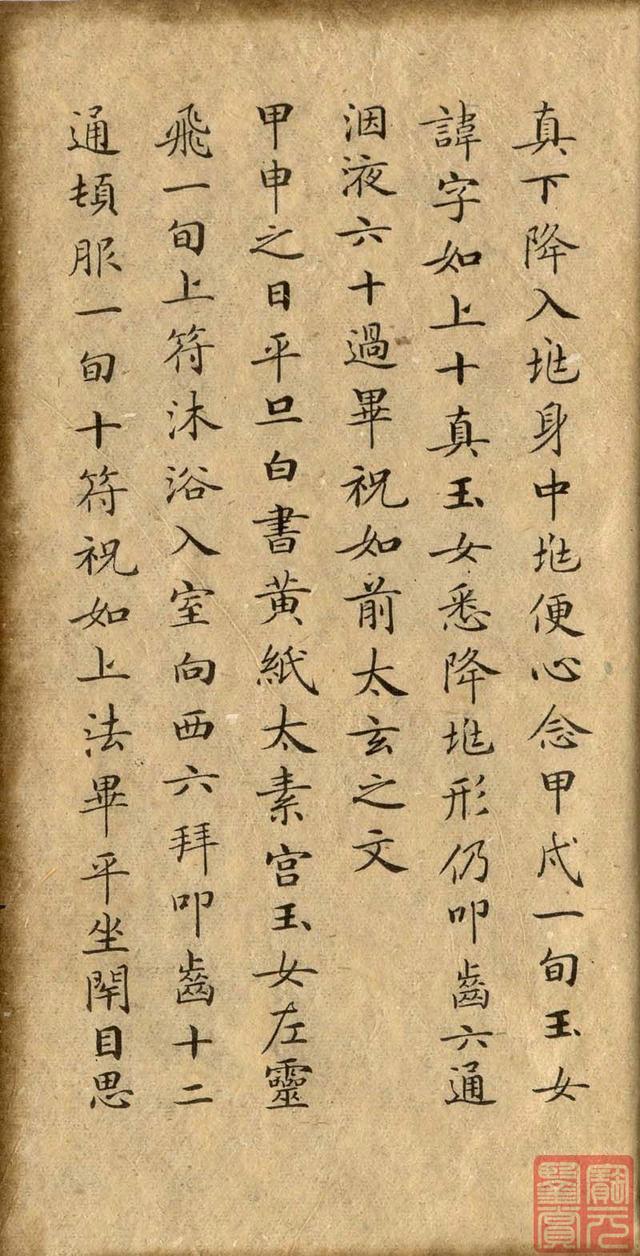 真下降入兆身中兆便心念甲戌一旬玉女
諱字如上十真玉女悉降兆形仍叩齒六通
咽液六十過畢祝如前太玄之文
甲申之日平旦白書黃紙太素宮玉女左靈
飛一旬上符沐浴入室向西六拜叩齒十二
通頓服一旬十符祝如上法畢平坐閉目思